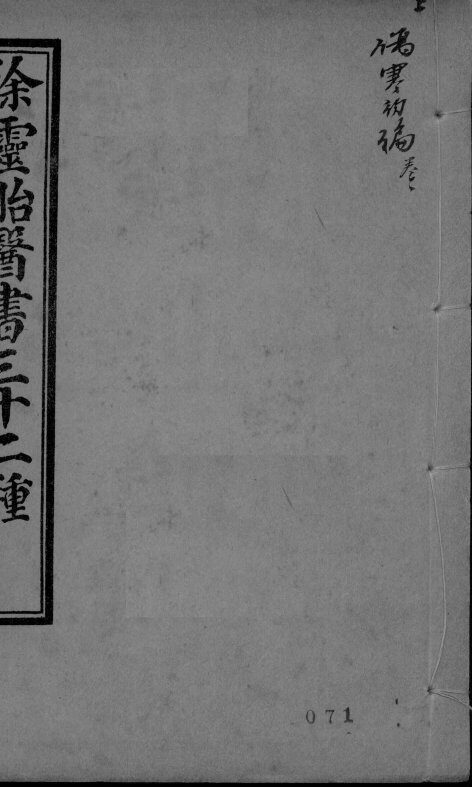 傷寒初稿卷二
徐靈胎醫書三十二種
071